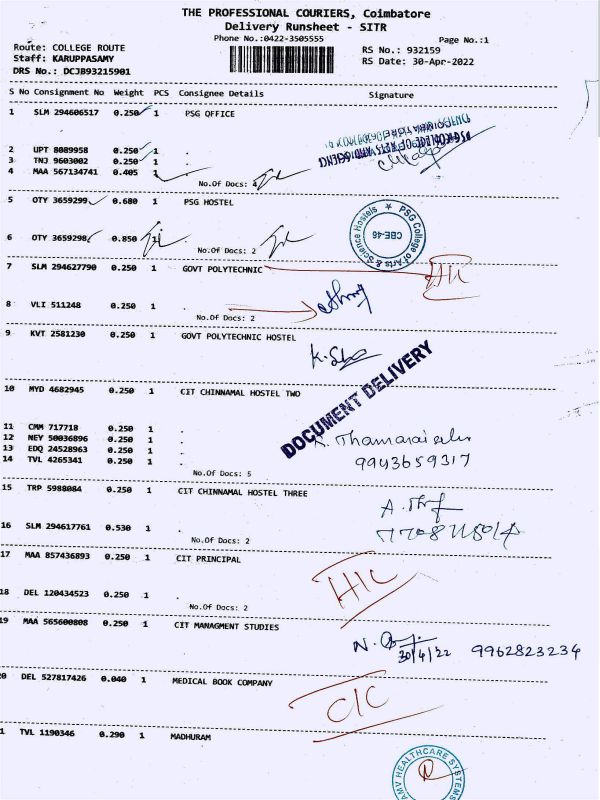 THE PROFESSIONAL COURIERS, Coimbatore
Delivery Runsheet - SITR
Phone No.:0422-3505555
Page No.:1
Route: COLLEGE ROUTE
Staff: KARUPPASAMY
DRS No.: DCJB93215901
RS No.: 932159
RS Date: 30-Apr-2022
S No Consignment No Weight PCS Consignee Details Signature
1 SLM 294606517 0.250 1 PSG OFFICE
2 UPT 8089958 0.250 1 .
3 TNJ 9603002 0.250 1 .
4 MAA 567134741 0.405 1 .
No.Of Docs: 4
5 OTY 3659299 0.680 1 PSG HOSTEL
PSG College of Arts & Science Hostels
CBE-46
6 OTY 3659298 0.850 1 .
No.Of Docs: 2
7 SLM 294627790 0.250 1 GOVT POLYTECHNIC
H/C
8 VLI 511248 0.250 1 .
No.Of Docs: 2
9 KVT 2581230 0.250 1 GOVT POLYTECHNIC HOSTEL
DOCUMENT DELIVERY
10 MYD 4682945 0.250 1 CIT CHINNAMAL HOSTEL TWO
11 CMM 717718 0.250 1 .
12 NEY 50036896 0.250 1 .
13 EDQ 24528963 0.250 1 .
14 TVL 4265341 0.250 1 .
9943659317
No.Of Docs: 5
15 TRP 5988084 0.250 1 CIT CHINNAMAL HOSTEL THREE
16 SLM 294617761 0.530 1 .
No.Of Docs: 2
17 MAA 857436893 0.250 1 CIT PRINCIPAL
H/C
18 DEL 120434523 0.250 1 .
No.Of Docs: 2
19 MAA 565600808 0.250 1 CIT MANAGMENT STUDIES
30/4/22 9962823234
20 DEL 527817426 0.040 1 MEDICAL BOOK COMPANY
C/C
1 TVL 1190346 0.290 1 MADHURAM
AMV HEALTHCARE SYSTEMS